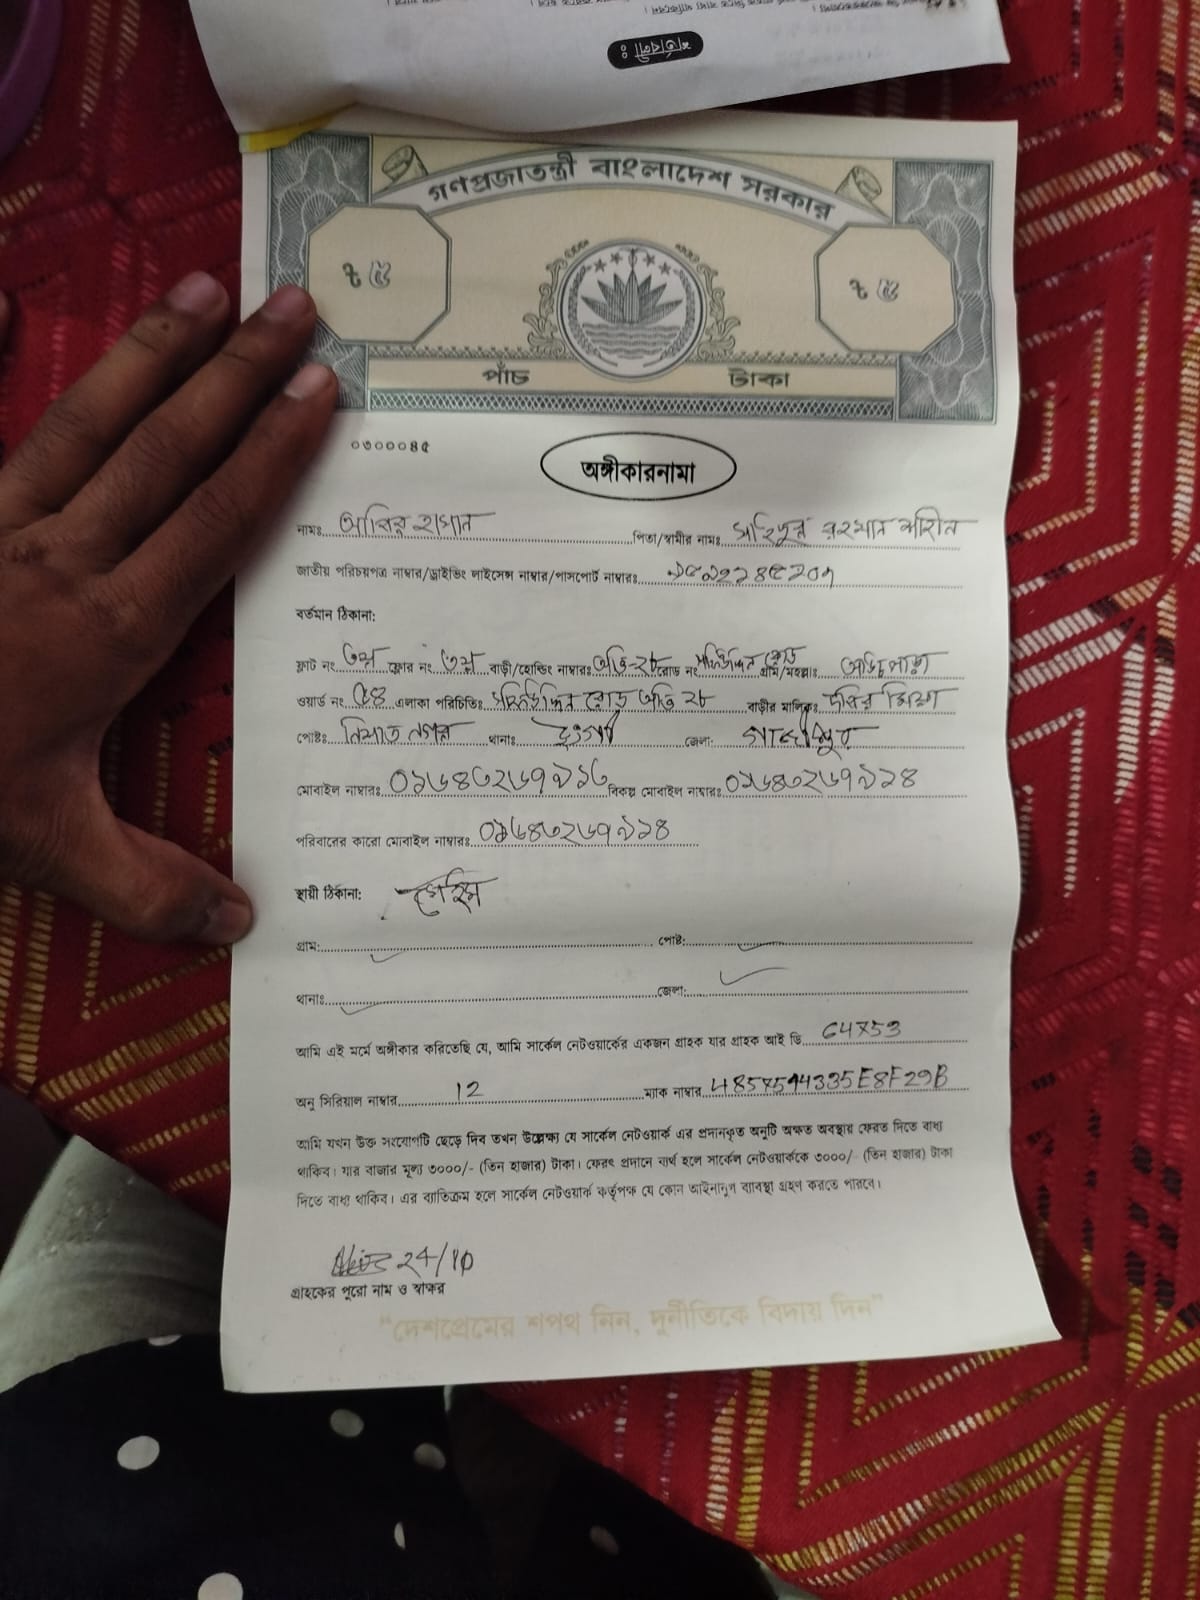 শর্তাবলী :
গণপ্রজাতন্ত্রী বাংলাদেশ সরকার
৳ ৫ ৳ ৫
পাঁচ টাকা
০৩০০০৪৫
অঙ্গীকারনামা
নামঃ আবির হাসান পিতা/স্বামীর নামঃ সাহিদুর রহমান শাহীন
জাতীয় পরিচয়পত্র নাম্বার/ড্রাইভিং লাইসেন্স নাম্বার/পাসপোর্ট নাম্বারঃ
বর্তমান ঠিকানা:
ফ্লাট নং ৩য় ফ্লোর নং ৩য় বাড়ী/হোল্ডিং নাম্বারঃ রোড নং গ্রাম/মহল্লাঃ
ওয়ার্ড নং ৫৪ এলাকা পরিচিতিঃ বাড়ীর মালিকঃ
পোষ্টঃ নিশাত নগর থানাঃ টংগী জেলা: গাজীপুর
মোবাইল নাম্বারঃ ০১৬৪৩২৬৭৯১৩ বিকল্প মোবাইল নাম্বারঃ ০১৬৪৩২৬৭৯১৪
পরিবারের কারো মোবাইল নাম্বারঃ ০১৬৪৩২৬৭৯১৪
স্থায়ী ঠিকানা:
গ্রাম: পোষ্ট:
থানাঃ জেলা:
আমি এই মর্মে অঙ্গীকার করিতেছি যে, আমি সার্কেল নেটওয়ার্কের একজন গ্রাহক যার গ্রাহক আই ডি 64753
অনু সিরিয়াল নাম্বার 12 ম্যাক নাম্বার 4857544335E8F29B
আমি যখন উক্ত সংযোগটি ছেড়ে দিব তখন উল্লেক্ষ্য যে সার্কেল নেটওয়ার্ক এর প্রদানকৃত অনুটি অক্ষত অবস্থায় ফেরত দিতে বাধ্য
থাকিব। যার বাজার মূল্য ৩০০০/- (তিন হাজার) টাকা। ফেরৎ প্রদানে ব্যর্থ হলে সার্কেল নেটওয়ার্ককে ৩০০০/- (তিন হাজার) টাকা
দিতে বাধ্য থাকিব। এর ব্যতিক্রম হলে সার্কেল নেটওয়ার্ক কর্তৃপক্ষ যে কোন আইনানুগ ব্যাবস্থা গ্রহণ করতে পারবে।
24/10
গ্রাহকের পুরো নাম ও স্বাক্ষর
"দেশপ্রেমের শপথ নিন, দুর্নীতিকে বিদায় দিন"